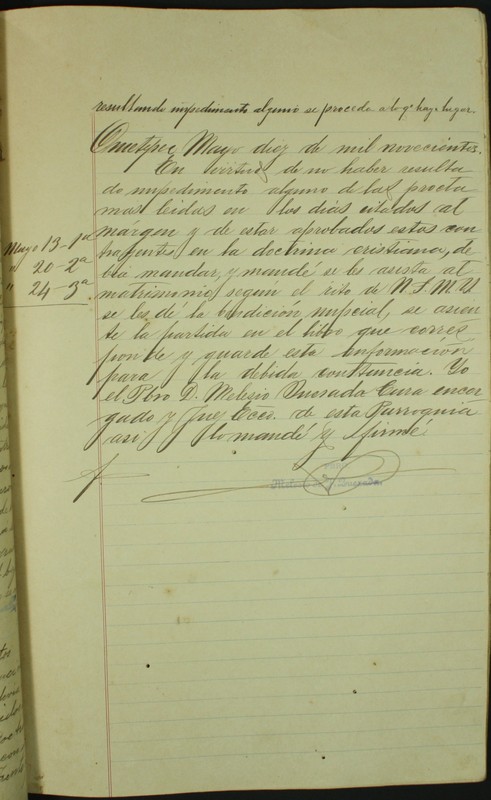 resultando impedimento alguno se proceda a lo qe haya lugar.
Ometepec Mayo diez de mil novecientos.
En virtud de no haber resulta
do impedimento alguno de las procla
mas leidas en los dias citados al
margen y de estar aprobados estos con
Mayo 13-1a
trayentes en la doctrina cristiana, de
" 20-2a
bia mandar, y mandé se les asista al
" 24-3a
matrimonio según el rito de N.S.M.Y.
se les de la bendición nupcial, se asien
te la partida en el libro que corres
ponde y guarde esta información
para la debida constancia. Yo
el Pbro D. Melesio Quesada Cura encar
gado y Juez Ecco. de esta Parroquia
asi lo mandé y firmé
Quesada